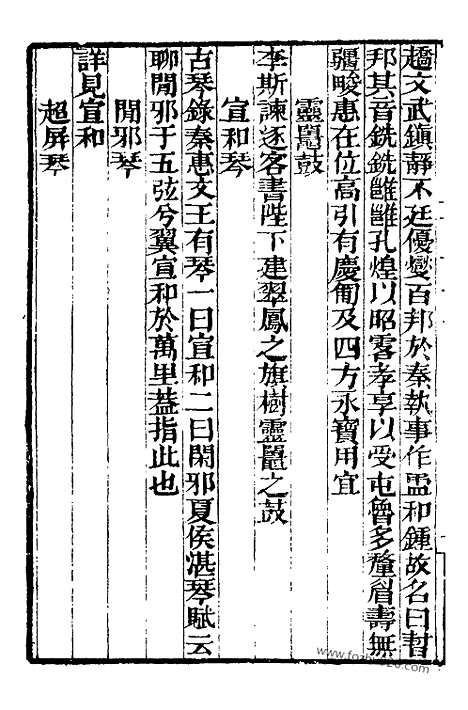 趫文武鎮靜不廷優燮百邦於秦執事作盄和鍾故名曰㫚
邦其音銑銑雝雝孔煌以昭雺孝享以受屯魯多釐眉壽無
疆畯惠在位高引有慶匍及四方永寶用宜
靈鼉鼓
李斯諫逐客書陛下建翠鳳之旗樹靈鼉之鼓
宣和琴
古琴錄秦惠文王有琴一曰宣和二曰閑邪夏侯湛琴賦云
聊閒邪于五弦兮翼宣和於萬里葢指此也
閒邪琴
詳見宣和
超屏琴